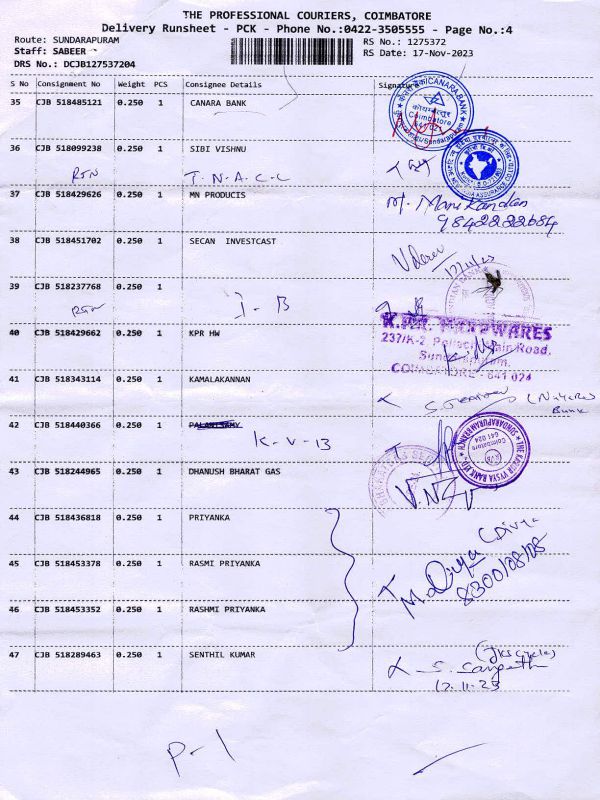 THE PROFESSIONAL COURIERS, COIMBATORE
Delivery Runsheet - PCK - Phone No.:0422-3505555 - Page No.:4
Route: SUNDARAPURAM RS No.: 1275372
Staff: SABEER RS Date: 17-Nov-2023
DRS No.: DCJB127537204
S No Consignment No Weight PCS Consignee Details Signature
35 CJB 518485121 0.250 1 CANARA BANK
CANARA BANK
Coimbatore
641021
36 CJB 518099238 0.250 1 SIBI VISHNU
RTN T.N.A.C.C
37 CJB 518429626 0.250 1 MN PRODUCTS
M. Manikandan
9842222684
38 CJB 518451702 0.250 1 SECAN INVESTCAST
39 CJB 518237768 0.250 1
RTN I-B
40 CJB 518429662 0.250 1 KPR HW
K.P.R. HARDWARES
237/K-2, Pollachi Main Road,
Sundarapuram,
COIMBATORE - 641 024
41 CJB 518343114 0.250 1 KAMALAKANNAN
Bank
42 CJB 518440366 0.250 1 PALANISAMY
K-V-B
THE KARUR VYSYA BANK LTD
SUNDARAPURAM
Coimbatore
641 024
43 CJB 518244965 0.250 1 DHANUSH BHARAT GAS
44 CJB 518436818 0.250 1 PRIYANKA
45 CJB 518453378 0.250 1 RASMI PRIYANKA
M. Divya (Divya
8300108108
46 CJB 518453352 0.250 1 RASHMI PRIYANKA
47 CJB 518289463 0.250 1 SENTHIL KUMAR
S. Sangeeth
17.11.23
P-1